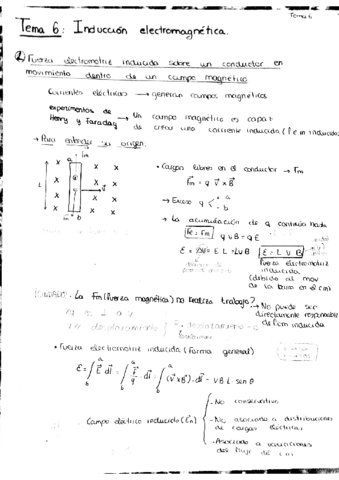 Tema 6
Tema 6: Inducción electromagnética.
Fuerza electromotriz inducida sobre un conductor en
movimiento dentro de un campo magnético
Corrientes eléctricas → generan campos magnéticos
experimentos de
Henry y Faraday → Un campo magnético es capaz
de crear una corriente inducida (fem inducida)
→ Para entender su origen:
• Cargas libres en el conductor → Fm
Fm = q v x B
→ Exceso q < + a
- b
→ La acumulación de q continúa hasta
Fe = Fm q v B = q E
E L = L v B ε = L v B
Fuerza electromotriz
inducida
(debido al mov
de la barra en el cm)
La Fm (fuerza magnética) no realiza trabajo? → No puede ser
directamente responsable
de fem inducida
• Fuerza electromotriz inducida (forma general)
ε = ∫ E dl = ∫ F/q · dl = ∫ (v x B) · dl = v B L · sen θ
Campo eléctrico inducido
- No conservativo
- No asociado a distribuciones
de cargas eléctricas
- Asociado a variaciones
del flujo de cm